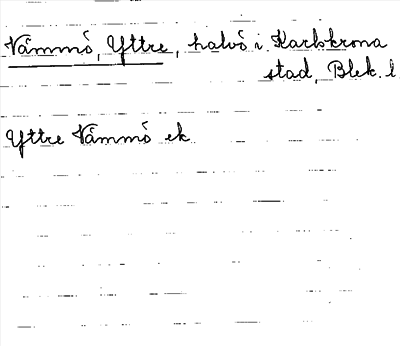 Vämmö, Yttre, halvö i Karlskrona
stad, Blek. l
Yttre Vämmö ek.